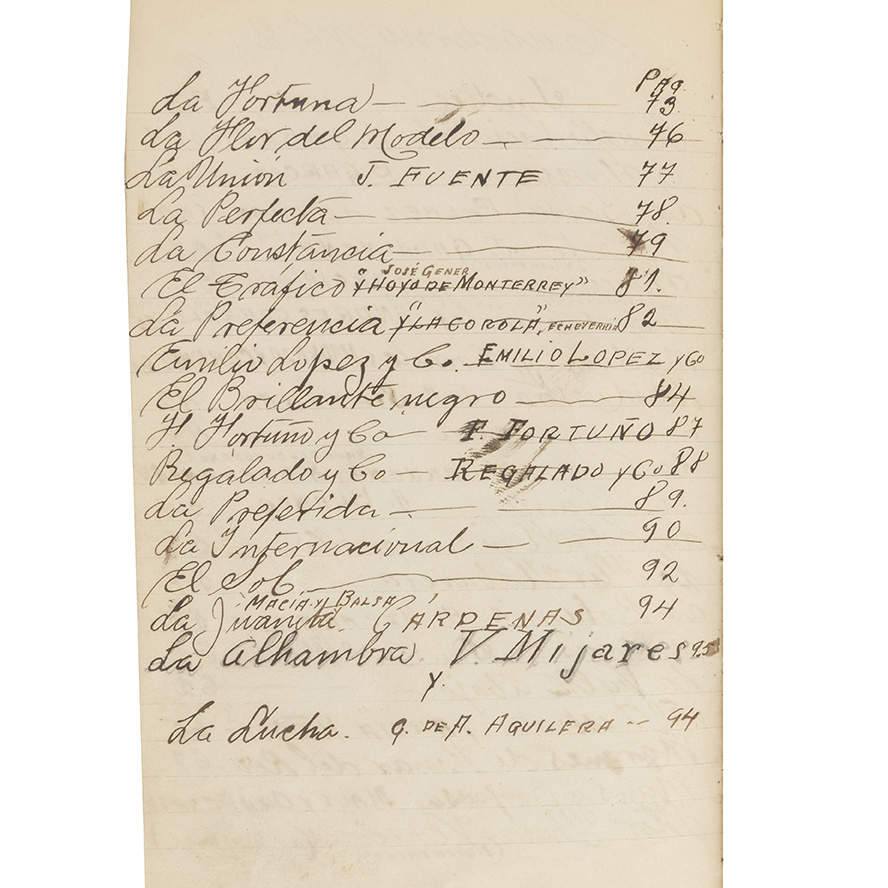 Pag.
La Fortuna — 73
La Flor del Modelo — 76
La Unión J. FUENTE 77
La Perfecta — 78.
La Constancia — 79
JOSÉ GENER
El Tráfico Y "HOYO DE MONTERREY" 81.
La Preferencia Y "LA COROLA", ECHEVERRIA 82
Emilio Lopez y Co. EMILIO LOPEZ y Co
El Brillante negro — 84
F. Fortuño y Co — F. FORTUÑO 87
Regalado y Co — REGALADO y Co 88
La Preferida — 89.
La Internacional — 90
El Sol — 92
MACIA Y BALSA
La Juanita. CÁRDENAS 94
La Alhambra V. Mijares 95
y.
La Lucha. G. DE A. AGUILERA -- 94